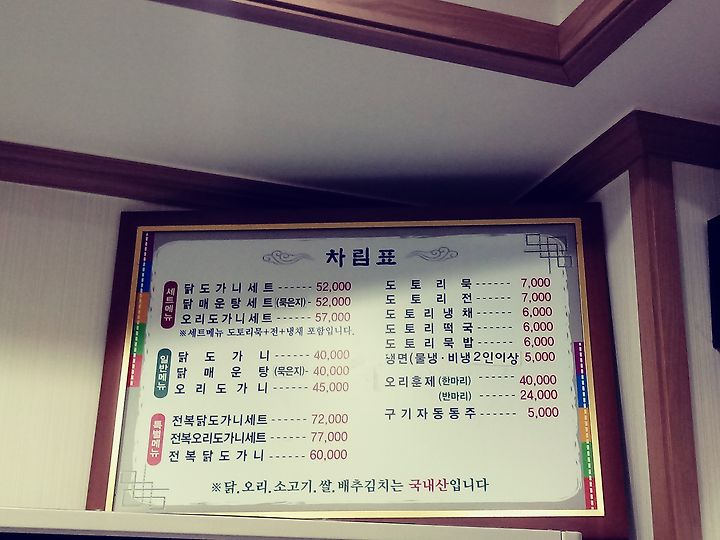 차림표
세트메뉴
닭도가니세트 ------ 52,000
닭매운탕세트(묵은지)- 52,000
오리도가니세트 ------ 57,000
※세트메뉴 도토리묵+전+냉채 포함입니다.
일반메뉴
닭도가니 ------ 40,000
닭매운탕(묵은지)- 40,000
오리도가니 ------ 45,000
특별메뉴
전복닭도가니세트 ------ 72,000
전복오리도가니세트 ------ 77,000
전복닭도가니 ------ 60,000
도토리묵 ------ 7,000
도토리전 ------ 7,000
도토리냉채 ------ 6,000
도토리떡국 ------ 6,000
도토리묵밥 ------ 6,000
냉면(물냉·비냉2인이상 5,000
오리훈제(한마리) ------ 40,000
(반마리) ------ 24,000
구기자동동주 ------ 5,000
※닭.오리.소고기.쌀.배추김치는 국내산입니다